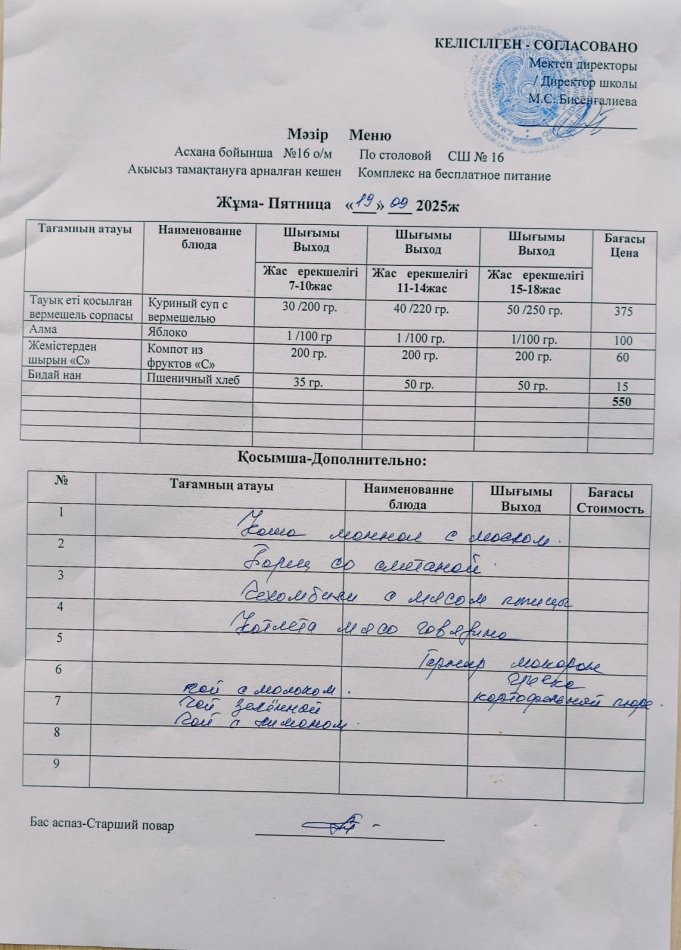 КЕЛІСІЛГЕН - СОГЛАСОВАНО
Мектеп директоры
/ Директор школы
М.С. Бисенгалиева
Мәзір Меню
Асхана бойынша №16 о/м По столовой СШ № 16
Ақысыз тамақтануға арналған кешен Комплекс на бесплатное питание
Жұма- Пятница «19» 09 2025ж
Тағамның атауы Наименование блюда Шығымы Выход Шығымы Выход Шығымы Выход Бағасы Цена
Жас ерекшелігі 7-10жас Жас ерекшелігі 11-14жас Жас ерекшелігі 15-18жас
Тауық еті қосылған вермешель сорпасы Куриный суп с вермешелью 30 /200 гр. 40 /220 гр. 50 /250 гр. 375
Алма Яблоко 1 /100 гр 1 /100 гр. 1/100 гр. 100
Жемістерден шырын «С» Компот из фруктов «С» 200 гр. 200 гр. 200 гр. 60
Бидай нан Пшеничный хлеб 35 гр. 50 гр. 50 гр. 15
550
Қосымша-Дополнительно:
№ Тағамның атауы Наименование блюда Шығымы Выход Бағасы Стоимость
1
Каша манная с маслом.
2
Борщ со сметаной.
3
с мясом птицы
4
Котлета мясо говядина
5
Гарнир макарон
6
греска
чай с молоком.
картофельной пюре.
7
чай зелёный
чай с лимоном.
8
9
Бас аспаз-Старший повар